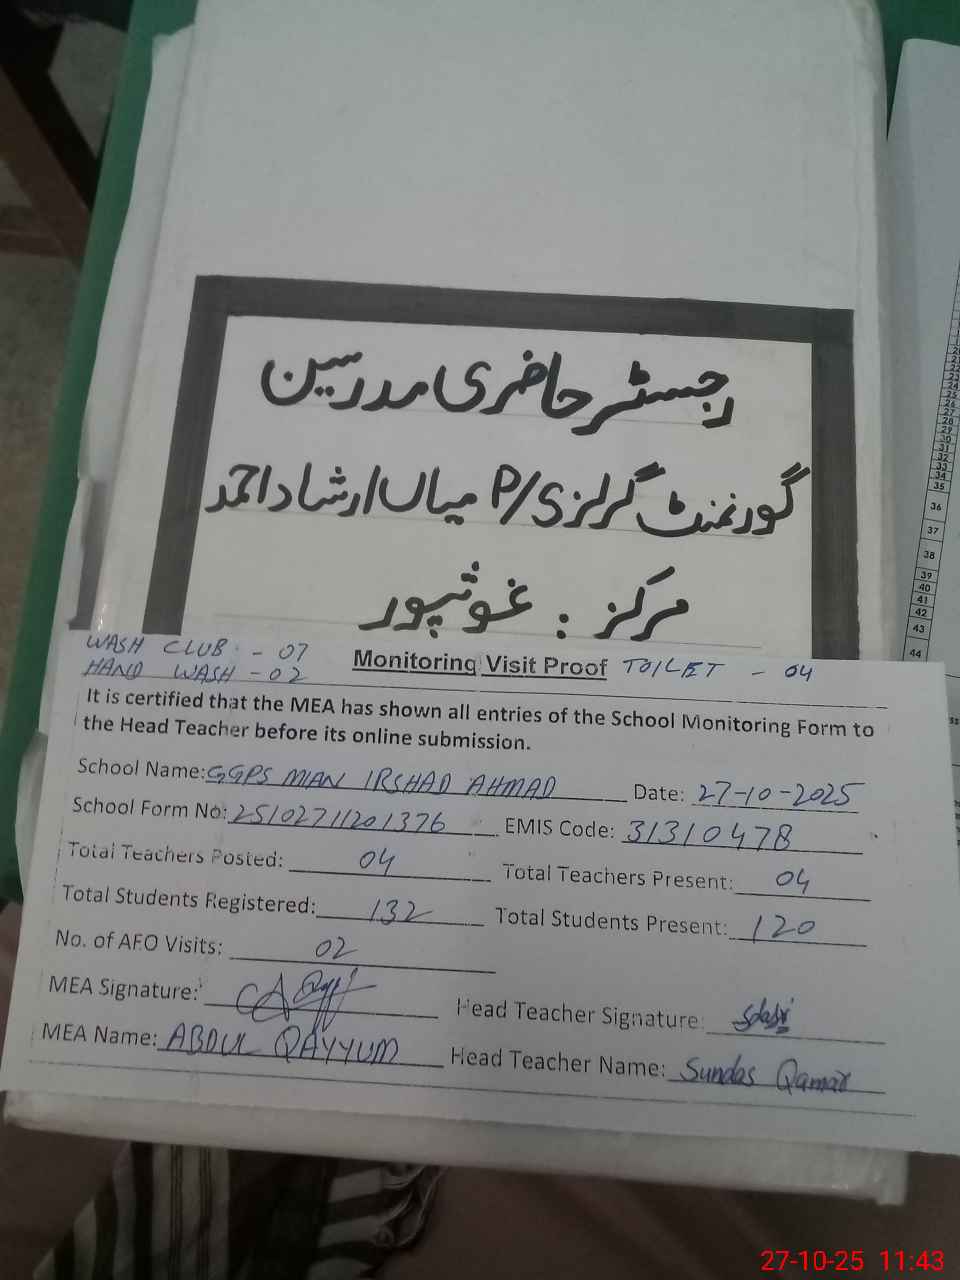 رجسٹر حاضری مدرسین
گورنمنٹ گرلز P/S میاں ارشاد احمد
مرکز : غوثپور
WASH CLUB - 07
HAND WASH - 02
Monitoring Visit Proof TOILET - 04
It is certified that the MEA has shown all entries of the School Monitoring Form to
the Head Teacher before its online submission.
School Name: GGPS MIAN IRSHAD AHMAD Date: 27-10-2025
School Form No: 25102711201376 EMIS Code: 31310478
Total Teachers Posted: 04 Total Teachers Present: 04
Total Students Registered: 132 Total Students Present: 120
No. of AEO Visits: 02
MEA Signature: Head Teacher Signature:
MEA Name: ABDUL QAYYUM Head Teacher Name: Sundas Qamar
35
36
37
38
39
40
41
42
43
44
27-10-25 11:43